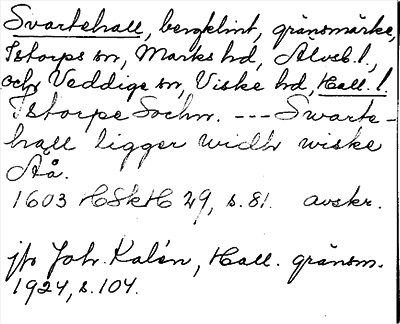 Svartehall, bergklint, gränsmärke,
Istorps sn, Marks hd, Älvsb. l.,
och Veddige sn, Viske hd, Hall. l.
Istorpe Sochn. --- Swarte-
hall ligger widh wiske
Åå.
1603 HSkH 29, s. 81. avskr.
jfr Joh. Kalén, Hall. gränsm.
1924, s. 104.